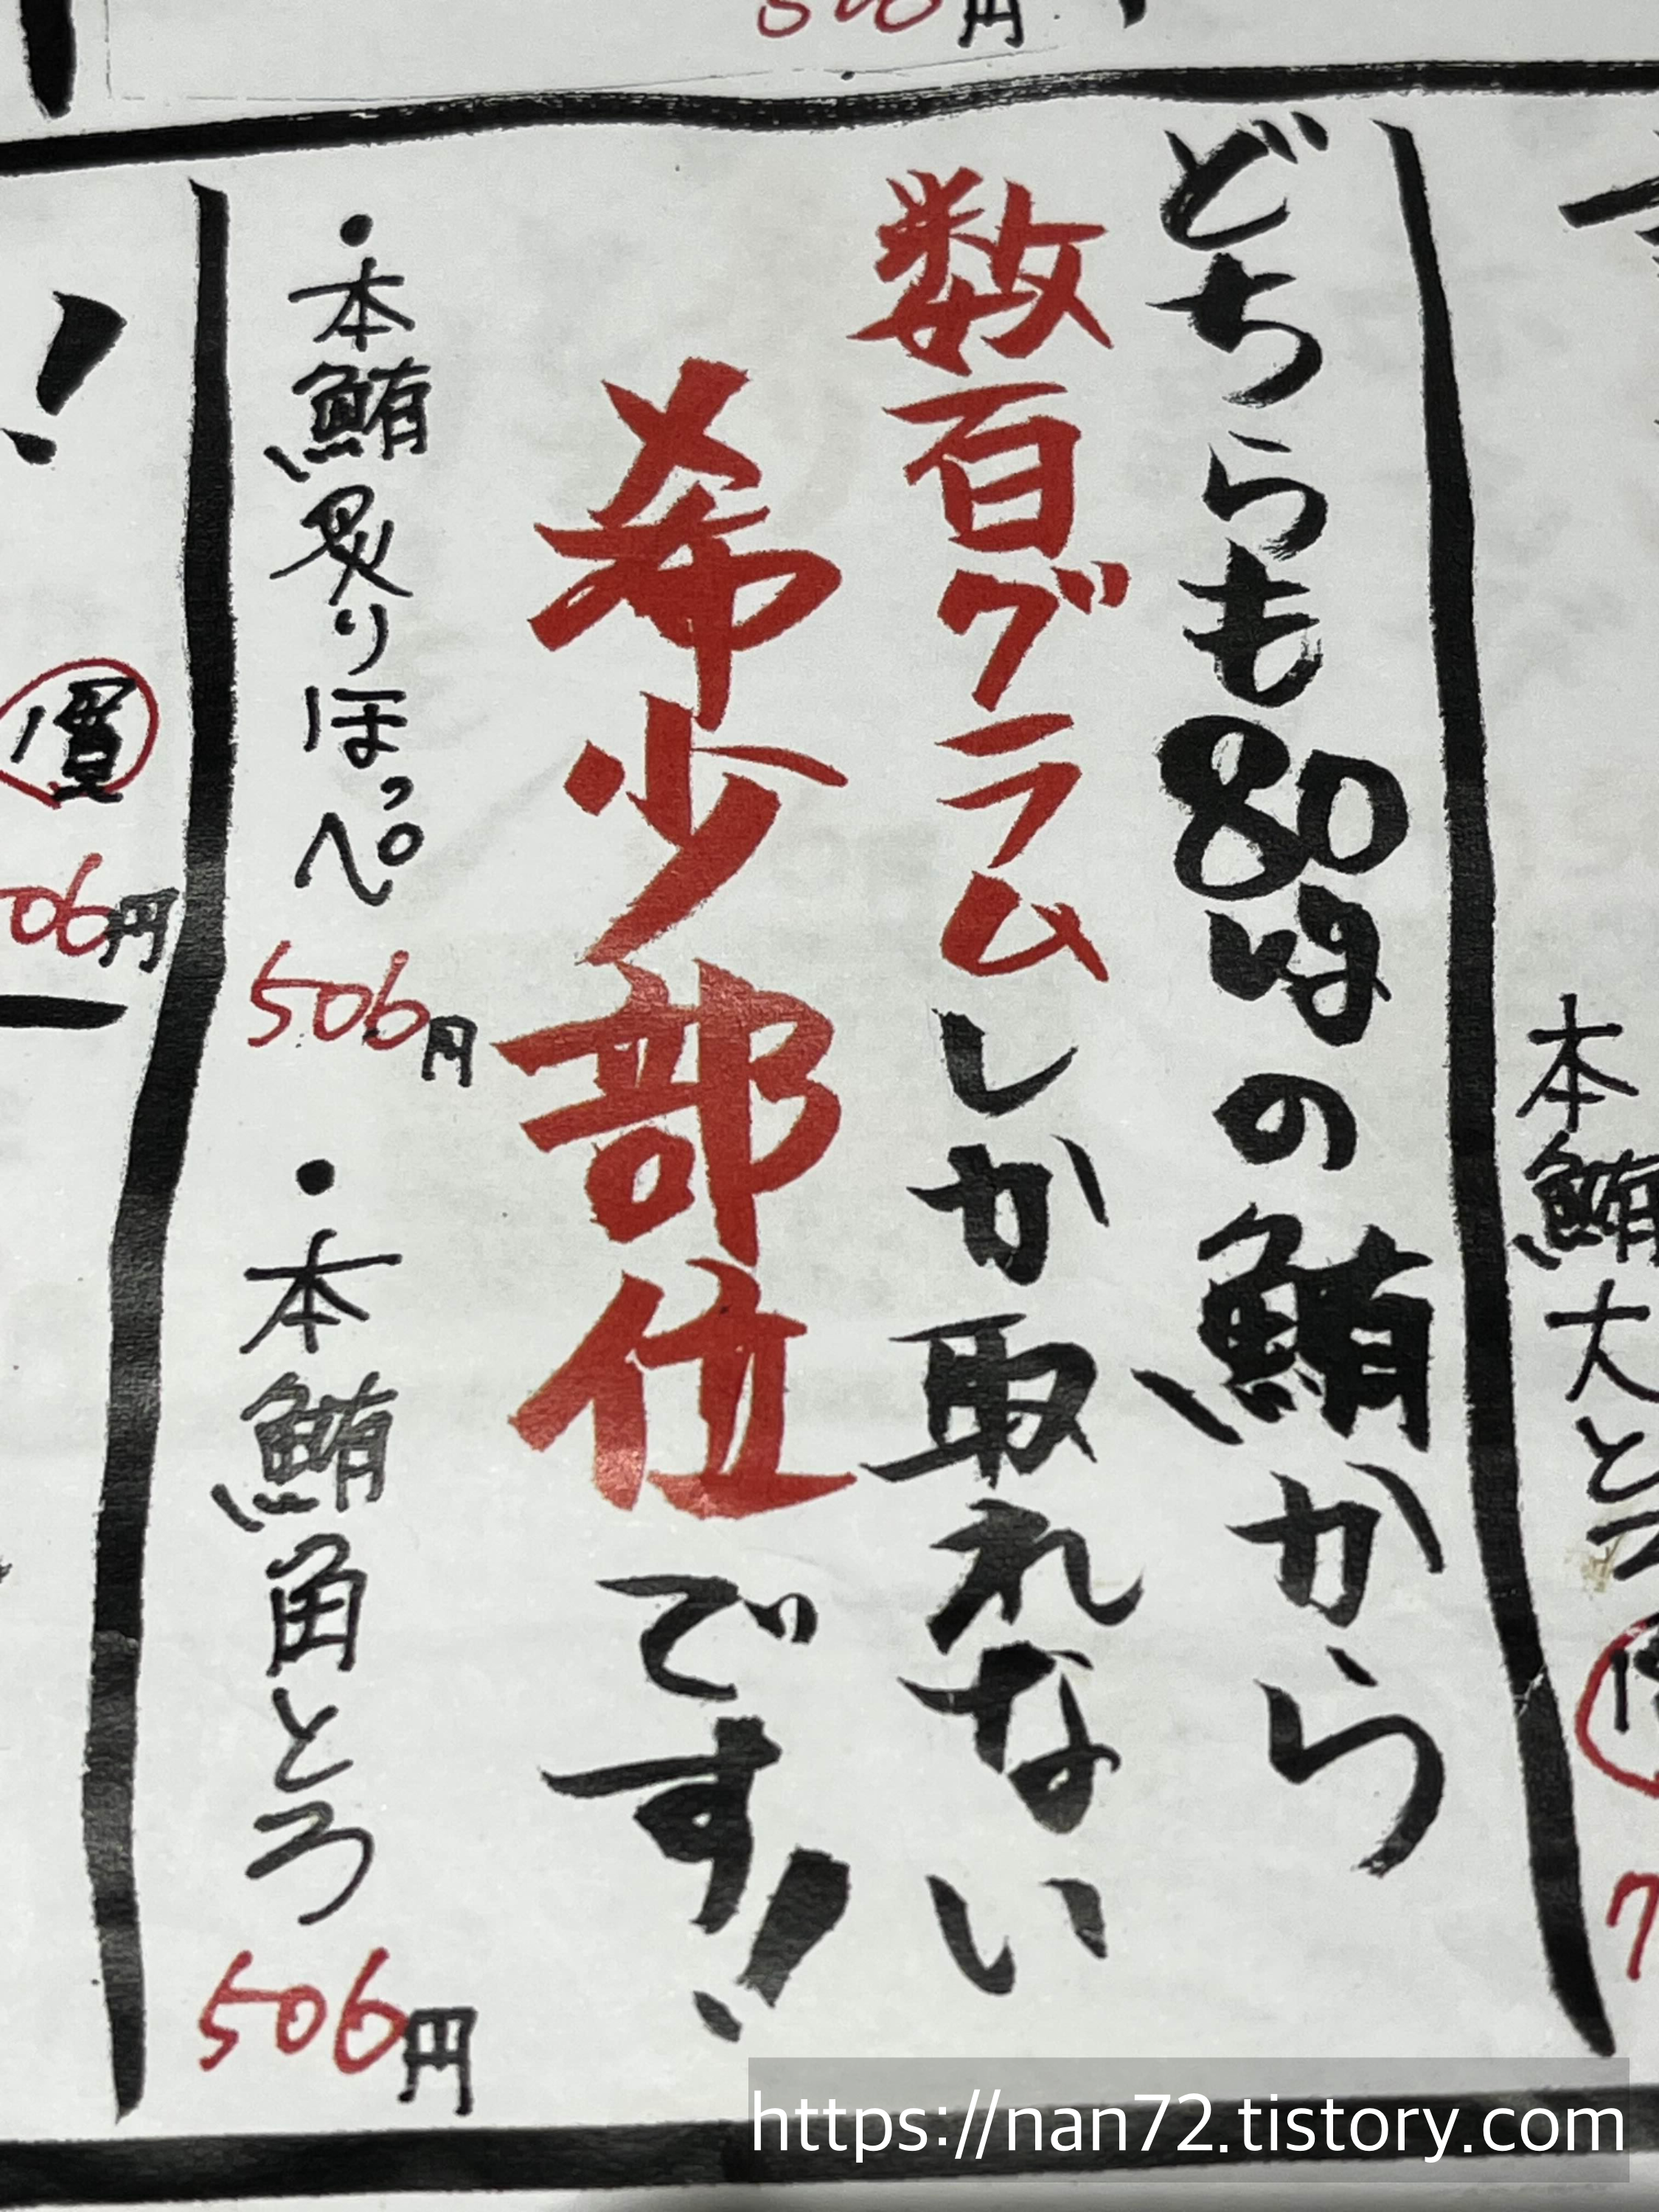 どちらも80kgの鮪から
数百グラムしか取れない
希少部位です!
・本鮪炙りほっぺ 506円
・本鮪角とろ 506円
本鮪大とろ
06円
https://nan72.tistory.com